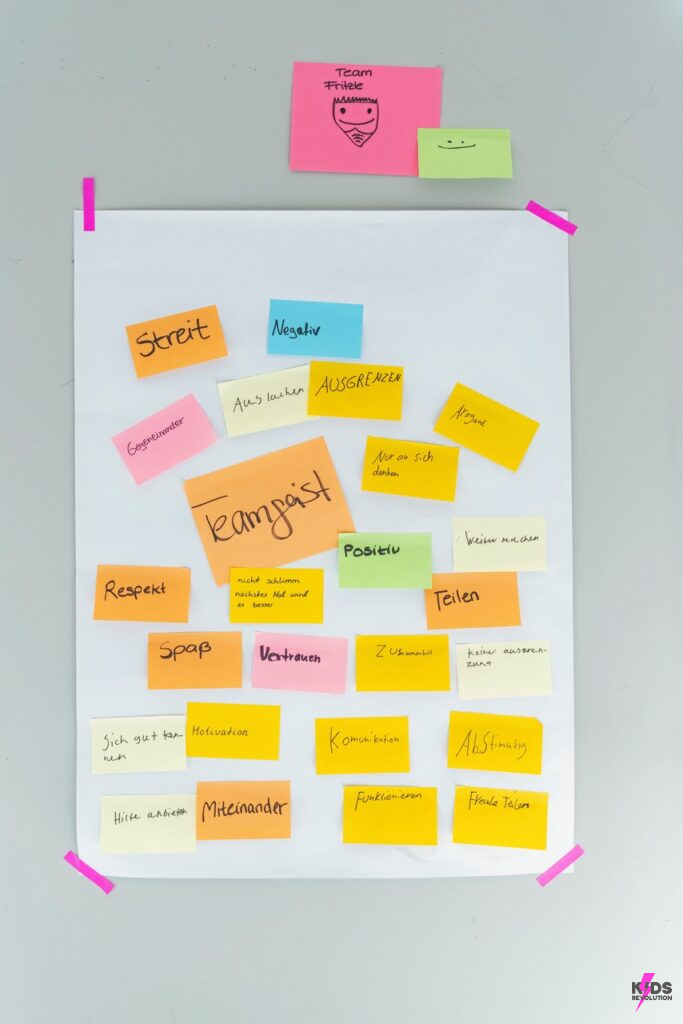 Team
Fritzle
Streit
Negativ
Auslachen
AUSGRENZEN
Gegeneinander
Arogant
Nur an sich
denken
Teamgeist
Positiv
Weiter machen
Respekt
nicht schlimm
nächstes Mal wird
es besser
Teilen
Spaß
Vertrauen
Zusammenhalt
Keine ausgren-
zung
Sich gut ken-
nen
Motivation
Komunikation
Abstimung
Hilfe anbieten
Miteinander
Funktionieren
Freude Teilen
KIDS
REVOLUTION